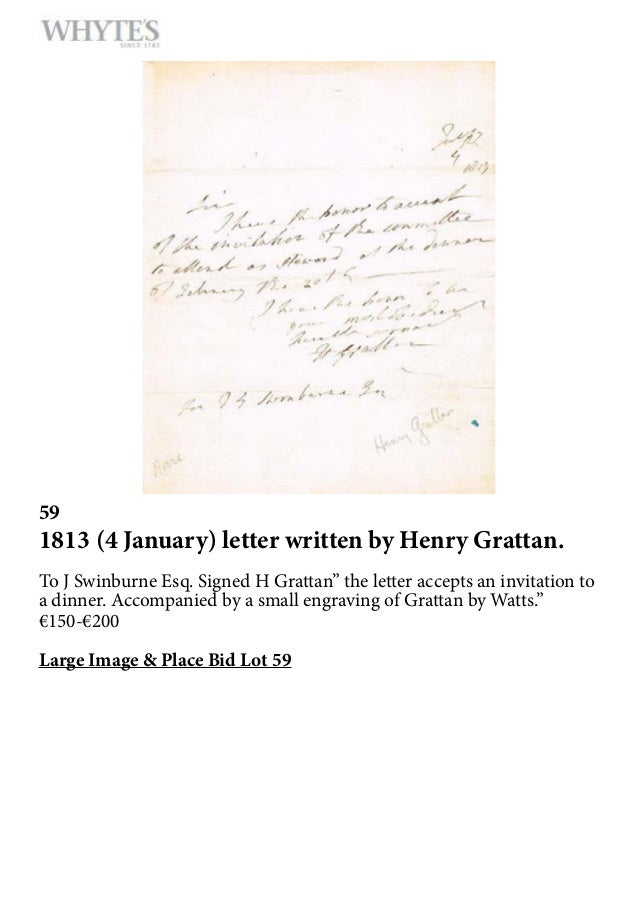 WHYTE'S
SINCE 1783
4
1813
Sir
I have the honor to accept
of the invitation of the committee
to attend as Steward at the dinner
of February the 20th
I have the honor to be
your most obedient
humble servant
H Grattan
Swinburne Esq
Henry Grattan
Rare
59
1813 (4 January) letter written by Henry Grattan.
To J Swinburne Esq. Signed H Grattan” the letter accepts an invitation to
a dinner. Accompanied by a small engraving of Grattan by Watts.”
€150-€200
Large Image & Place Bid Lot 59